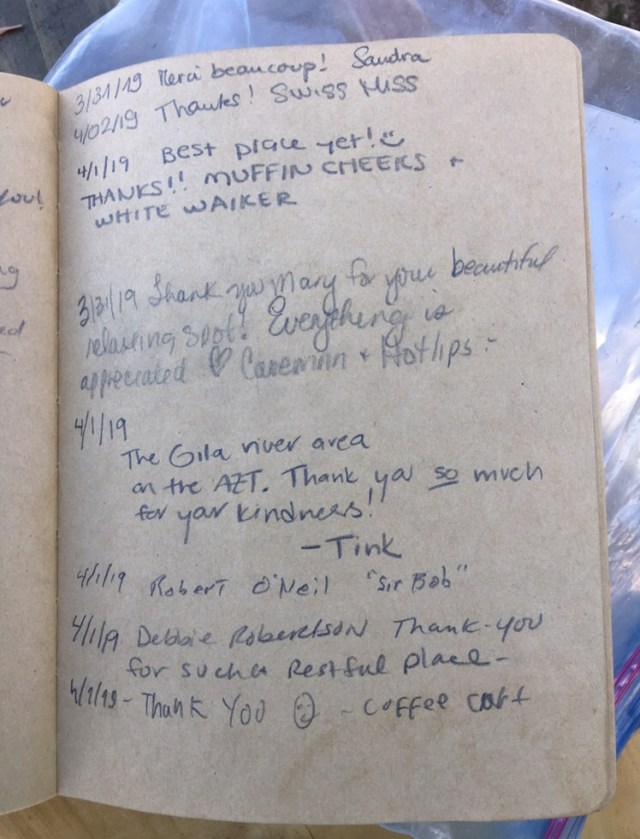 3/31/19 Merci beaucoup! Sandra
4/02/19 Thanks! SWISS MISS
4/1/19 BEST place yet!
THANKS!! MUFFIN CHEEKS +
WHITE WALKER
3/31/19 Thank you Mary for your beautiful
relaxing spot! Everything is
appreciated ♡ Caveman + Hotlips
4/1/19
The Gila river area
on the AZT. Thank you so much
for your kindness!!
- Tink
4/1/19 Robert O'Neil "Sir Bob"
4/1/19 Debbie Robertson Thank-you
for such a Restful place-
- Thank YOU ☺ - Coffee
you!